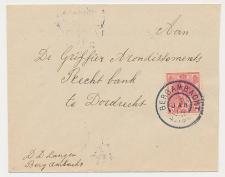 Aan
De Griffier Arondissements
Recht bank
te Dordrecht
BERGAMBACHT
D D Langen
Berg Ambacht